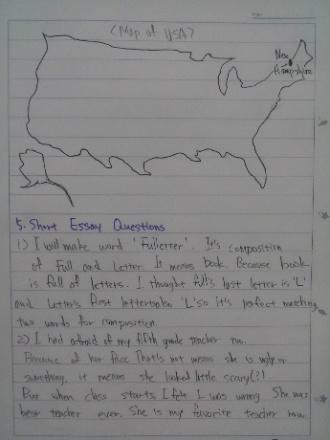 <Map of USA>
New
Hampshire
5. Short Essay Questions
1) I will make word 'Fulletter'. It's composition
of Full and Letter. It means book. Because book
is full of letters. I thought full's last letter is 'L'
and Letter's first letter 'L' so it's perfect matching
two words for composition.
2) I had afraid of my fifth grade teacher too.
Because of her face. That's not means she is ugly or
something, it means she looked little scary(?)
But when class starts, I felt I was wrong. She was
best teacher ever. She is my favorite teacher now.